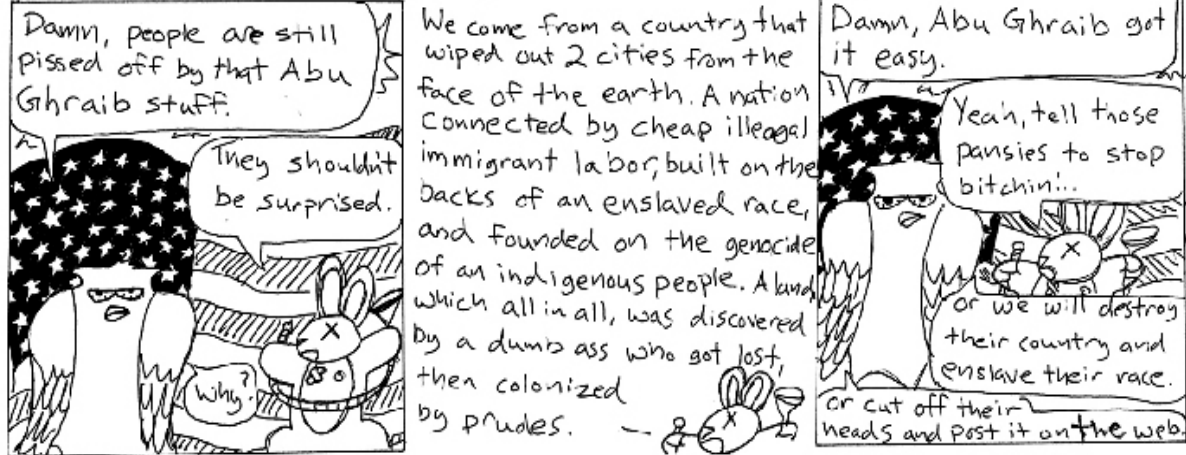 Damn, people are still
pissed off by that Abu
Ghraib stuff.
They shouldn't
be surprised.
Why?
We come from a country that
wiped out 2 cities from the
face of the earth. A nation
connected by cheap illeagal
immigrant labor, built on the
backs of an enslaved race,
and founded on the genocide
of an indigenous people. A land
which all in all, was discovered
by a dumb ass who got lost,
then colonized
by prudes.
Damn, Abu Ghraib got
it easy.
Yeah, tell those
pansies to stop
bitchin'..
or we will destroy
their country and
enslave their race.
or cut off their
heads and post it on the web.